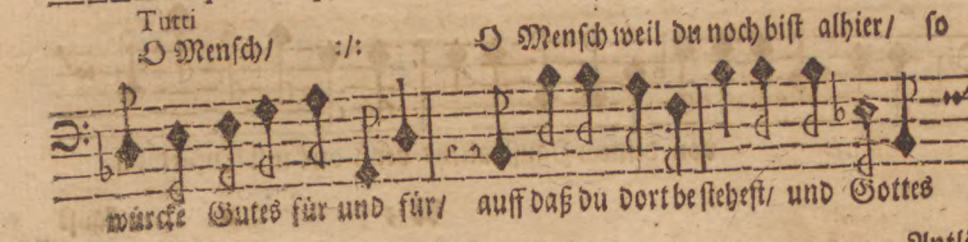 Tutti
O Mensch/ :/: O Mensch weil du noch bist alhier/ so
würcke Gutes für und für/ auff daß du dort bestehest/ und Gottes